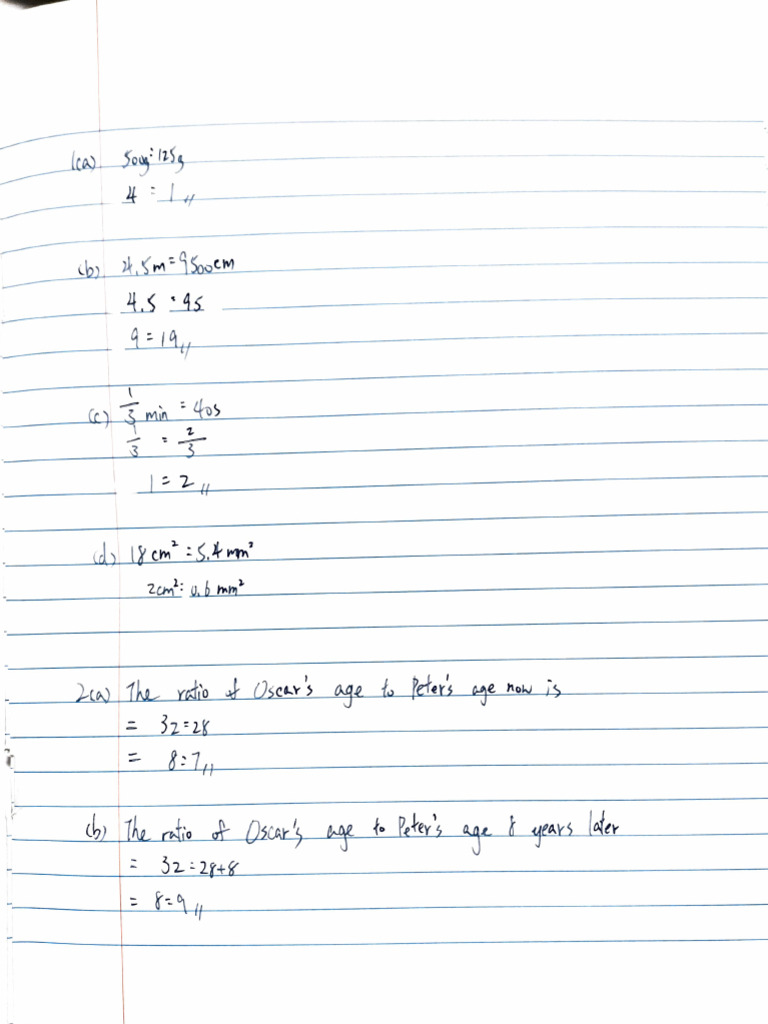 1(a) 500g : 125g
4 : 1 //
(b) 4.5m : 9500cm
4.5 : 95
9 = 19 //
(c) 1/3 min : 40s
1/3 : 2/3
1 : 2 //
(d) 18 cm² : 5.4 mm²
2cm² : 0.6 mm²
2(a) The ratio of Oscar's age to Peter's age now is
= 32 : 28
= 8 : 7 //
(b) The ratio of Oscar's age to Peter's age 8 years later
= 32 : 28+8
= 8 : 9 //